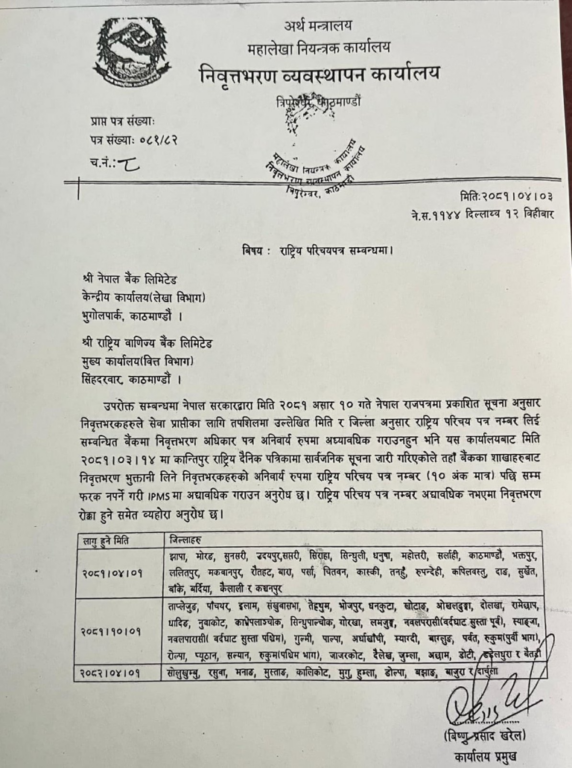 अर्थ मन्त्रालय
महालेखा नियन्त्रक कार्यालय
निवृत्तभरण व्यवस्थापन कार्यालय
त्रिपुरेश्वर, काठमाण्डौं
प्राप्त पत्र संख्याः
पत्र संख्याः ०८१/८२
च.नं.: ८
महालेखा नियन्त्रक कार्यालय
निवृत्तभरण व्यवस्थापन कार्यालय
त्रिपुरेश्वर, काठमाडौं
मितिः२०८१।०४।०३
ने.स.११४४ दिल्लाथ्व १२ बिहीबार
बिषय : राष्ट्रिय परिचयपत्र सम्बन्धमा।
श्री नेपाल बैंक लिमिटेड
केन्द्रीय कार्यालय(लेखा विभाग)
भुगोलपार्क, काठमाण्डौं ।
श्री राष्ट्रिय वाणिज्य बैंक लिमिटेड
मुख्य कार्यालय(बित्त विभाग)
सिंहदरवार, काठमाण्डौं ।
उपरोक्त सम्बन्धमा नेपाल सरकारद्वारा मिति २०८१ असार १० गते नेपाल राजपत्रमा प्रकाशित सूचना अनुसार
निवृत्तभरकहरुले सेवा प्राप्तीका लागि तपशिलमा उल्लेखित मिति र जिल्ला अनुसार राष्ट्रिय परिचय पत्र नम्बर लिई
सम्वन्धित बैंकमा निवृत्तभरण अधिकार पत्र अनिवार्य रुपमा अध्यावधिक गराउनहुन भनि यस कार्यालयबाट मिति
२०८१।०३।१४ मा कान्तिपुर राष्ट्रिय दैनिक पत्रिकामा सार्वजनिक सूचना जारी गरिएकोले तहाँ बैंकका शाखाहरुबाट
निवृत्तभरण भुक्तानी लिने निवृत्तभरकहरुको अनिवार्य रुपमा राष्ट्रिय परिचय पत्र नम्बर (१० अंक मात्र) पछि सम्म
फरक नपर्ने गरी IPMS मा अद्यावधिक गराउन अनुरोध छ। राष्ट्रिय परिचय पत्र नम्बर अद्यावधिक नभएमा निवृत्तभरण
रोक्का हुने समेत व्यहोरा अनुरोध छ।
लागु हुने मिति जिल्लाहरु
२०८१।०४।०१ झापा, मोरङ, सुनसरी, उदयपुर,सप्तरी, सिराहा, सिन्धुली, धनुषा, महोत्तरी, सर्लाही, काठमाण्डौं, भक्तपुर,
ललितपुर, मकवानपुर, रौतहट, बारा, पर्सा, चितवन, कास्की, तनहुँ, रुपन्देही, कपिलवस्तु, दाङ, सुर्खेत,
बाँके, बर्दिया, कैलाली र कञ्चनपुर
२०८१।१०।०१ ताप्लेजुङ, पाँचथर, इलाम, संखुवासभा, तेह्रथुम, भोजपुर, धनकुटा, खोटाङ, ओखलढुङ्गा, दोलखा, रामेछाप,
धादिङ, नुवाकोट, काभ्रेपलाञ्चोक, सिन्धुपाल्चोक, गोरखा, लमजुङ, नवलपरासी(बर्दघाट सुस्ता पूर्व), स्याङ्जा,
नवलपरासी( बर्दघाट सुस्ता पश्चिम), गुल्मी, पाल्पा, अर्घाखाँची, म्याग्दी, बागलुङ, पर्वत, रुकुम(पूर्वी भाग),
रोल्पा, प्यूठान, सल्यान, रुकुम(पश्चिम भाग), जाजरकोट, दैलेख, जुम्ला, अछाम, डोटी, डडेलधुरा र बैतडी
२०८२।०४।०१ सोलुखुम्बु, रसुवा, मनाङ, मुस्ताङ, कालिकोट, मुगु, हुम्ला, डोल्पा, बझाङ, बाजुरा र दार्चुला
(बिष्णु प्रसाद खरेल)
कार्यालय प्रमुख